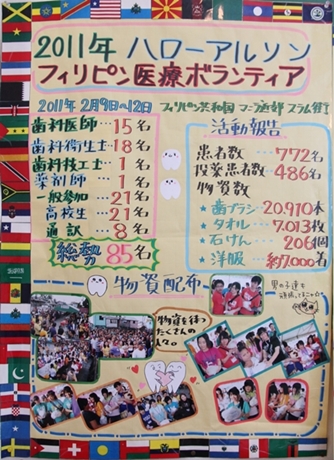 2011年 ハローアルソン
フィリピン医療ボランティア
2011年 2月9日~12日 フィリピン共和国 マニラ近郊 スラム街
歯科医師…15名
歯科衛生士…18名
歯科技工士…1名
薬剤師…1名
一般参加…21名
高校生…21名
通訳…8名
総勢 85名
活動報告
患者数…772名
投薬患者数…486名
物資数
★歯ブラシ…20,910本
★タオル…7,013枚
★石けん…206個
★洋服…約7,000着
物資配布
物資を待つ
たくさんの
人々。
男の子達も